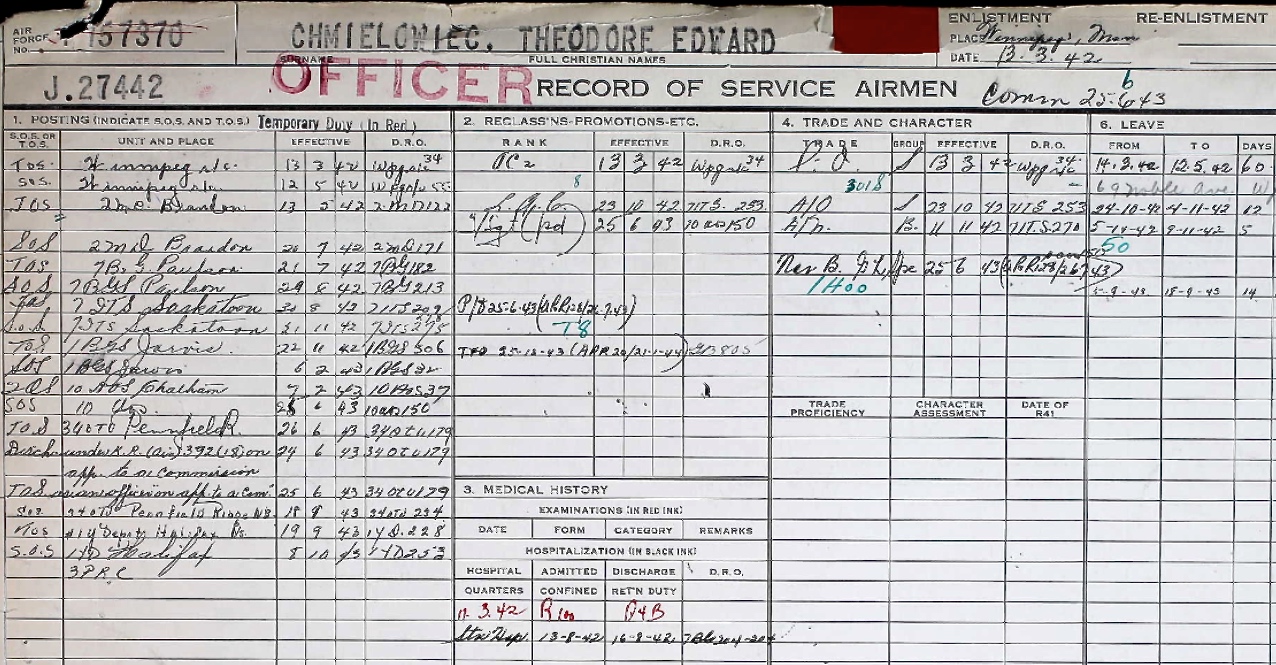 AIR FORCE NO. 157370
CHMIELOWIEC, THEODORE EDWARD
SURNAME FULL CHRISTIAN NAMES
ENLISTMENT RE-ENLISTMENT
PLACE Winnipeg, Man
DATE 13.3.42
J.27442
OFFICER
RECORD OF SERVICE AIRMEN
Comm 25-6-43
6
1. POSTING (INDICATE S.O.S. AND T.O.S.) Temporary Duty (In Red)
S.O.S. OR T.O.S. UNIT AND PLACE EFFECTIVE D.R.O.
TOS Winnipeg 13 3 42 34
SOS Winnipeg 12 5 42 55
TOS 2 M.D. Brandon 13 5 42 2 MD 122
SOS 2 MD Brandon 20 7 42 2 MD 171
TOS 7 B.G. Paulson 21 7 42 7BG182
SOS 7 BGS Paulson 29 8 42 7BG213
TOS 7 ITS Saskatoon 30 8 42 7ITS209
S.O.S 7 ITS Saskatoon 21 11 42 7ITS
TOS 1 BGS Jarvis 22 11 42 1BGS 306
SOS 1 BGS Jarvis 6 2 43 1BGS 32
TOS 10 AOS Chatham 7 2 43 10AOS37
SOS 10 Aos 6 43 10AOS150
T.O.S 34 OTU Pennfield R. 26 6 43 34OTU179
Disch under K.R. (Air) 392 (18) on 24 6 43 34OTU179
app. to a Commission
TOS as an officer on app. to a Com 25 6 43 34OTU179
SOS 34OTU Pennfield Ridge NB 18 9 43 34OTU 254
TOS #1 Y Depot Halifax NS. 19 9 43 1YD.228
S.O.S 1YD Halifax 8 10 43 1YD253
3 PRC
2. RECLASS'NS-PROMOTIONS-ETC.
RANK EFFECTIVE D.R.O.
AC2 13 3 42 34
8
L.A.C. 23 10 42 7ITS. 253
T/Sgt (pd) 25 6 43 10AOS150
P/O 25-6-43 (APR128/26-7-43)
T8
F/O 25-12-43 (APR 20/21-1-44)
3. MEDICAL HISTORY
EXAMINATIONS (IN RED INK)
DATE FORM CATEGORY REMARKS
HOSPITALIZATION (IN BLACK INK)
HOSPITAL ADMITTED DISCHARGE D.R.O.
QUARTERS CONFINED RET'N DUTY
3.42 R100 A4B
Stn Hosp. 13-8-42 16-8-42
4. TRADE AND CHARACTER
TRADE GROUP EFFECTIVE D.R.O.
S 13 3 42 34
3018
A/O S 23 10 42 7ITS 253
A/N. B. 11 11 42 7ITS270
Nav B. 25 6 43 (APR128/26-7-43)
1400
TRADE PROFICIENCY CHARACTER ASSESSMENT DATE OF R41
6. LEAVE
FROM TO DAYS
14.3.42 12.5.42 60
69 Noble Ave. W
24-10-42 4-11-42 12
5-11-42 9-11-42 5
50
5-9-43 18-9-43 14